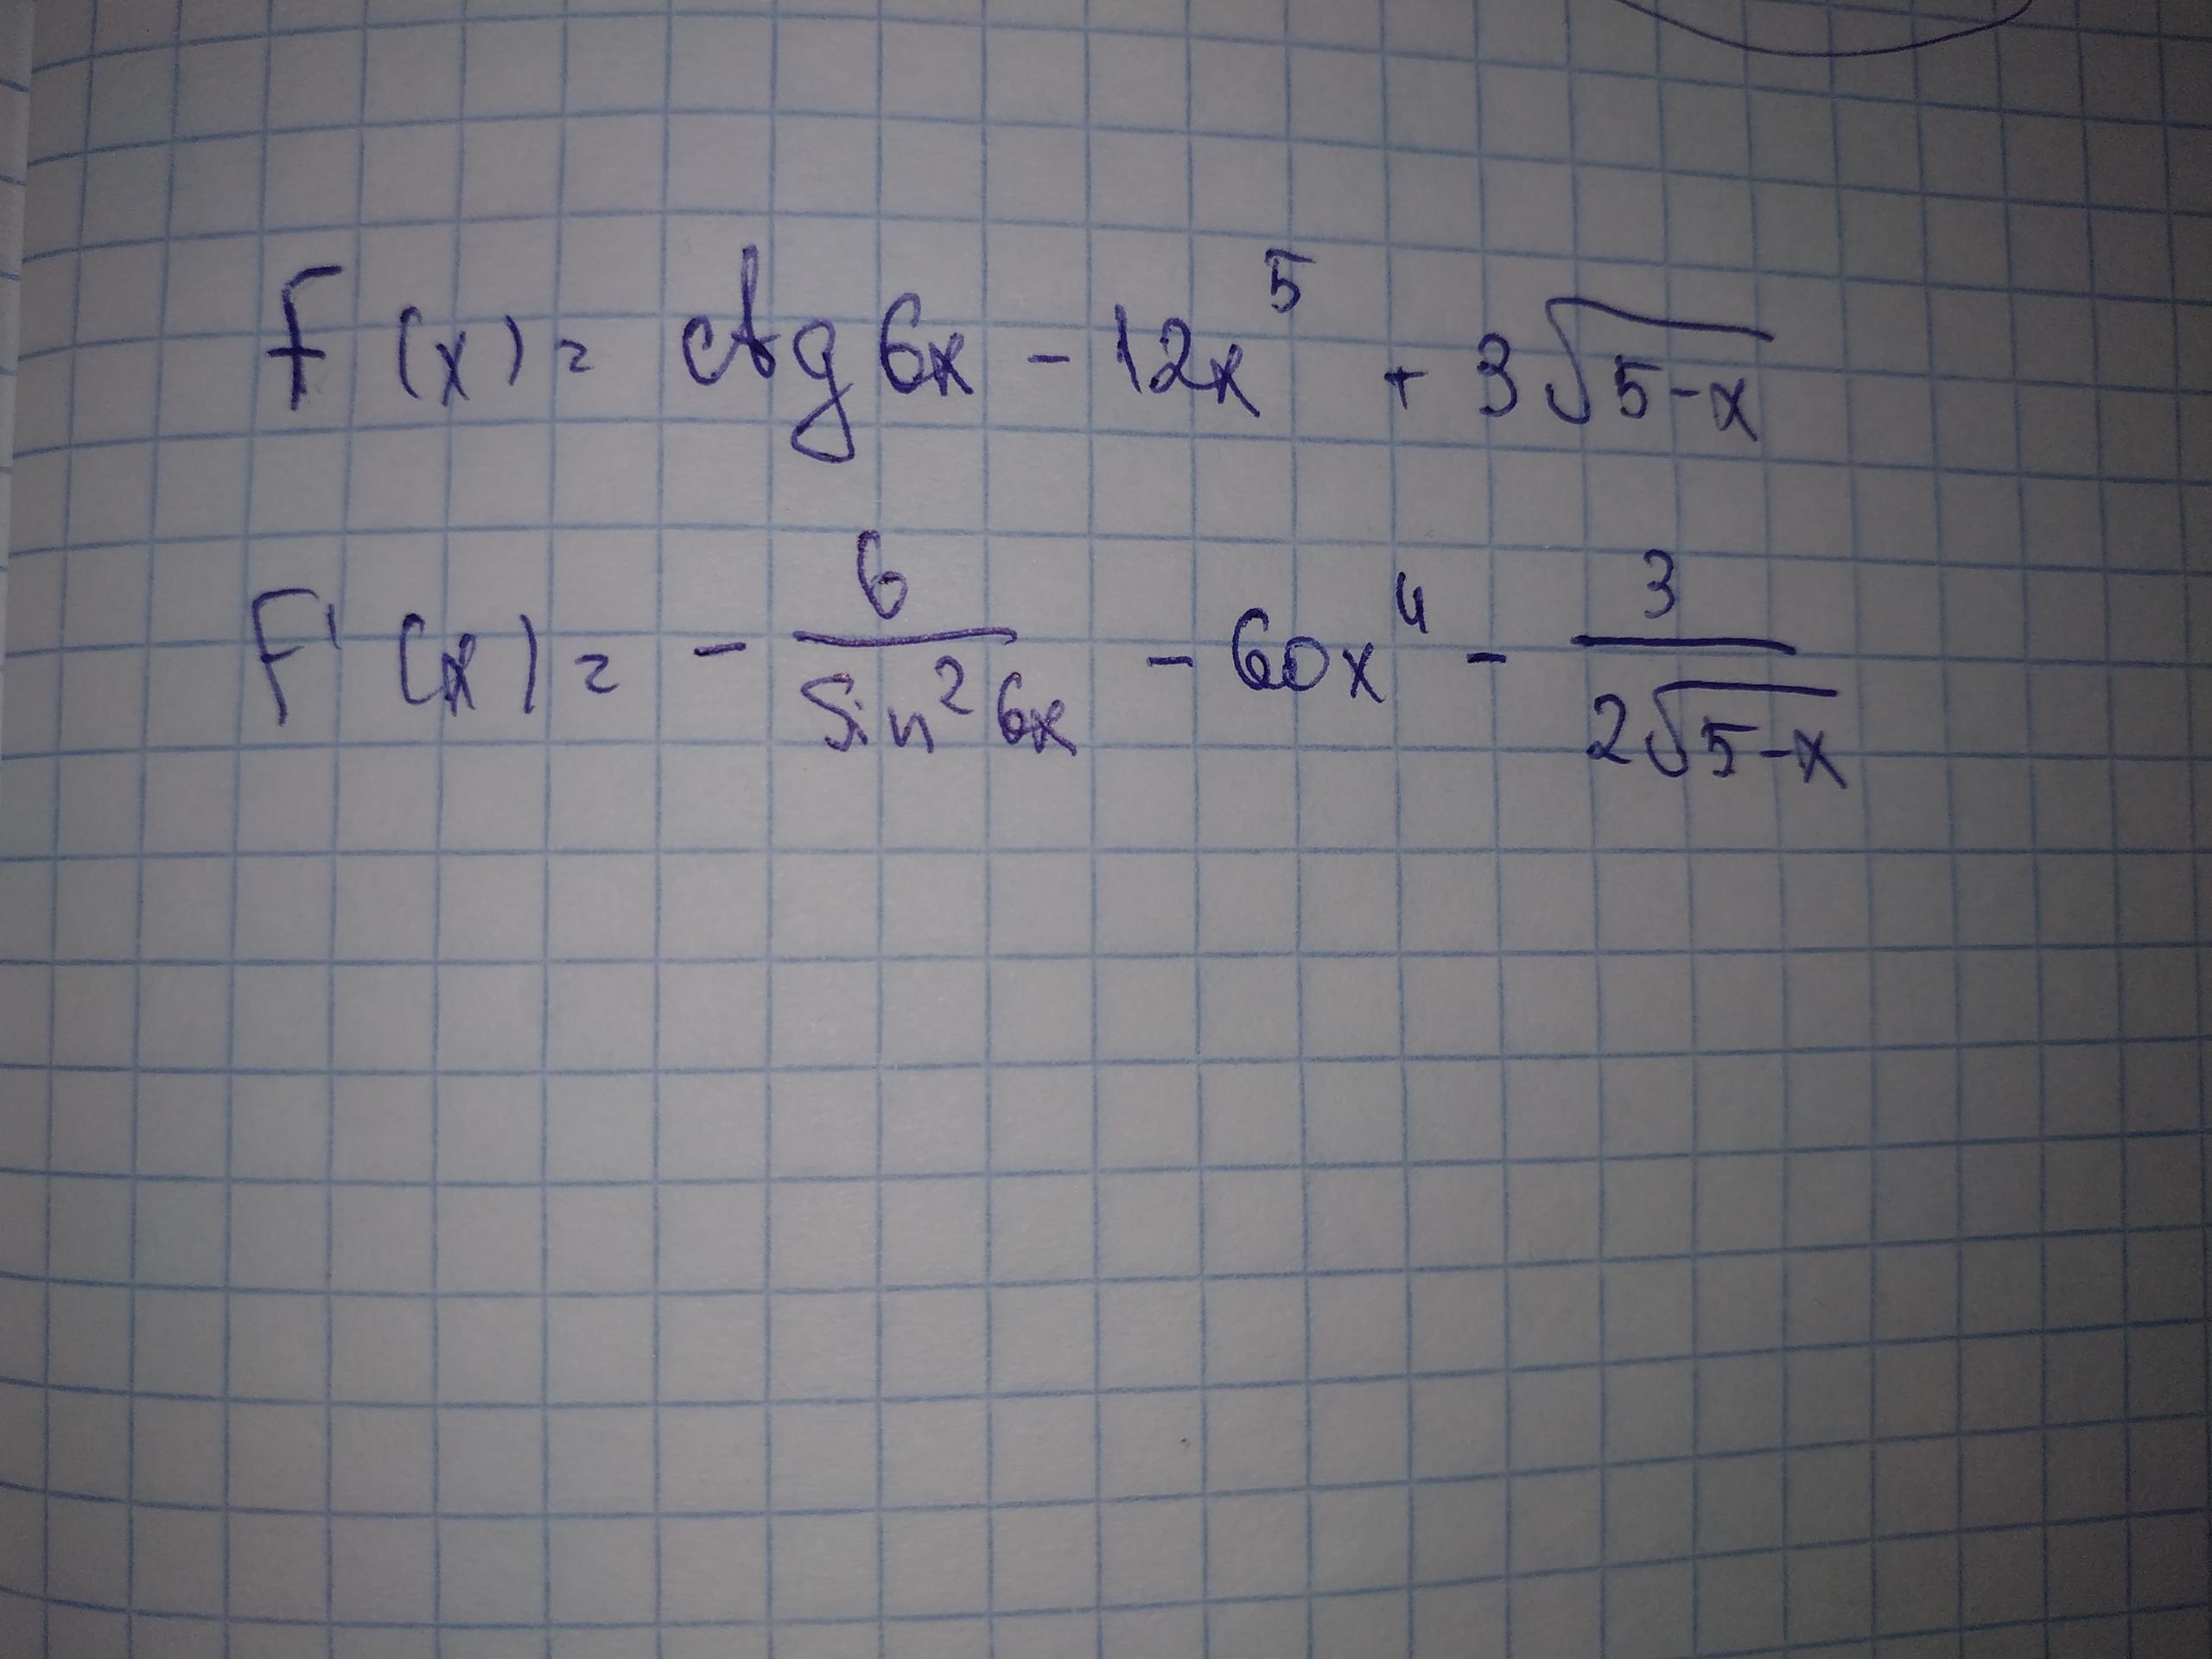 F(x) = ctg 6x - 12x⁵ + 3√(5-x)
F'(x) = - 6/(sin² 6x) - 60x⁴ - 3/(2√(5-x))